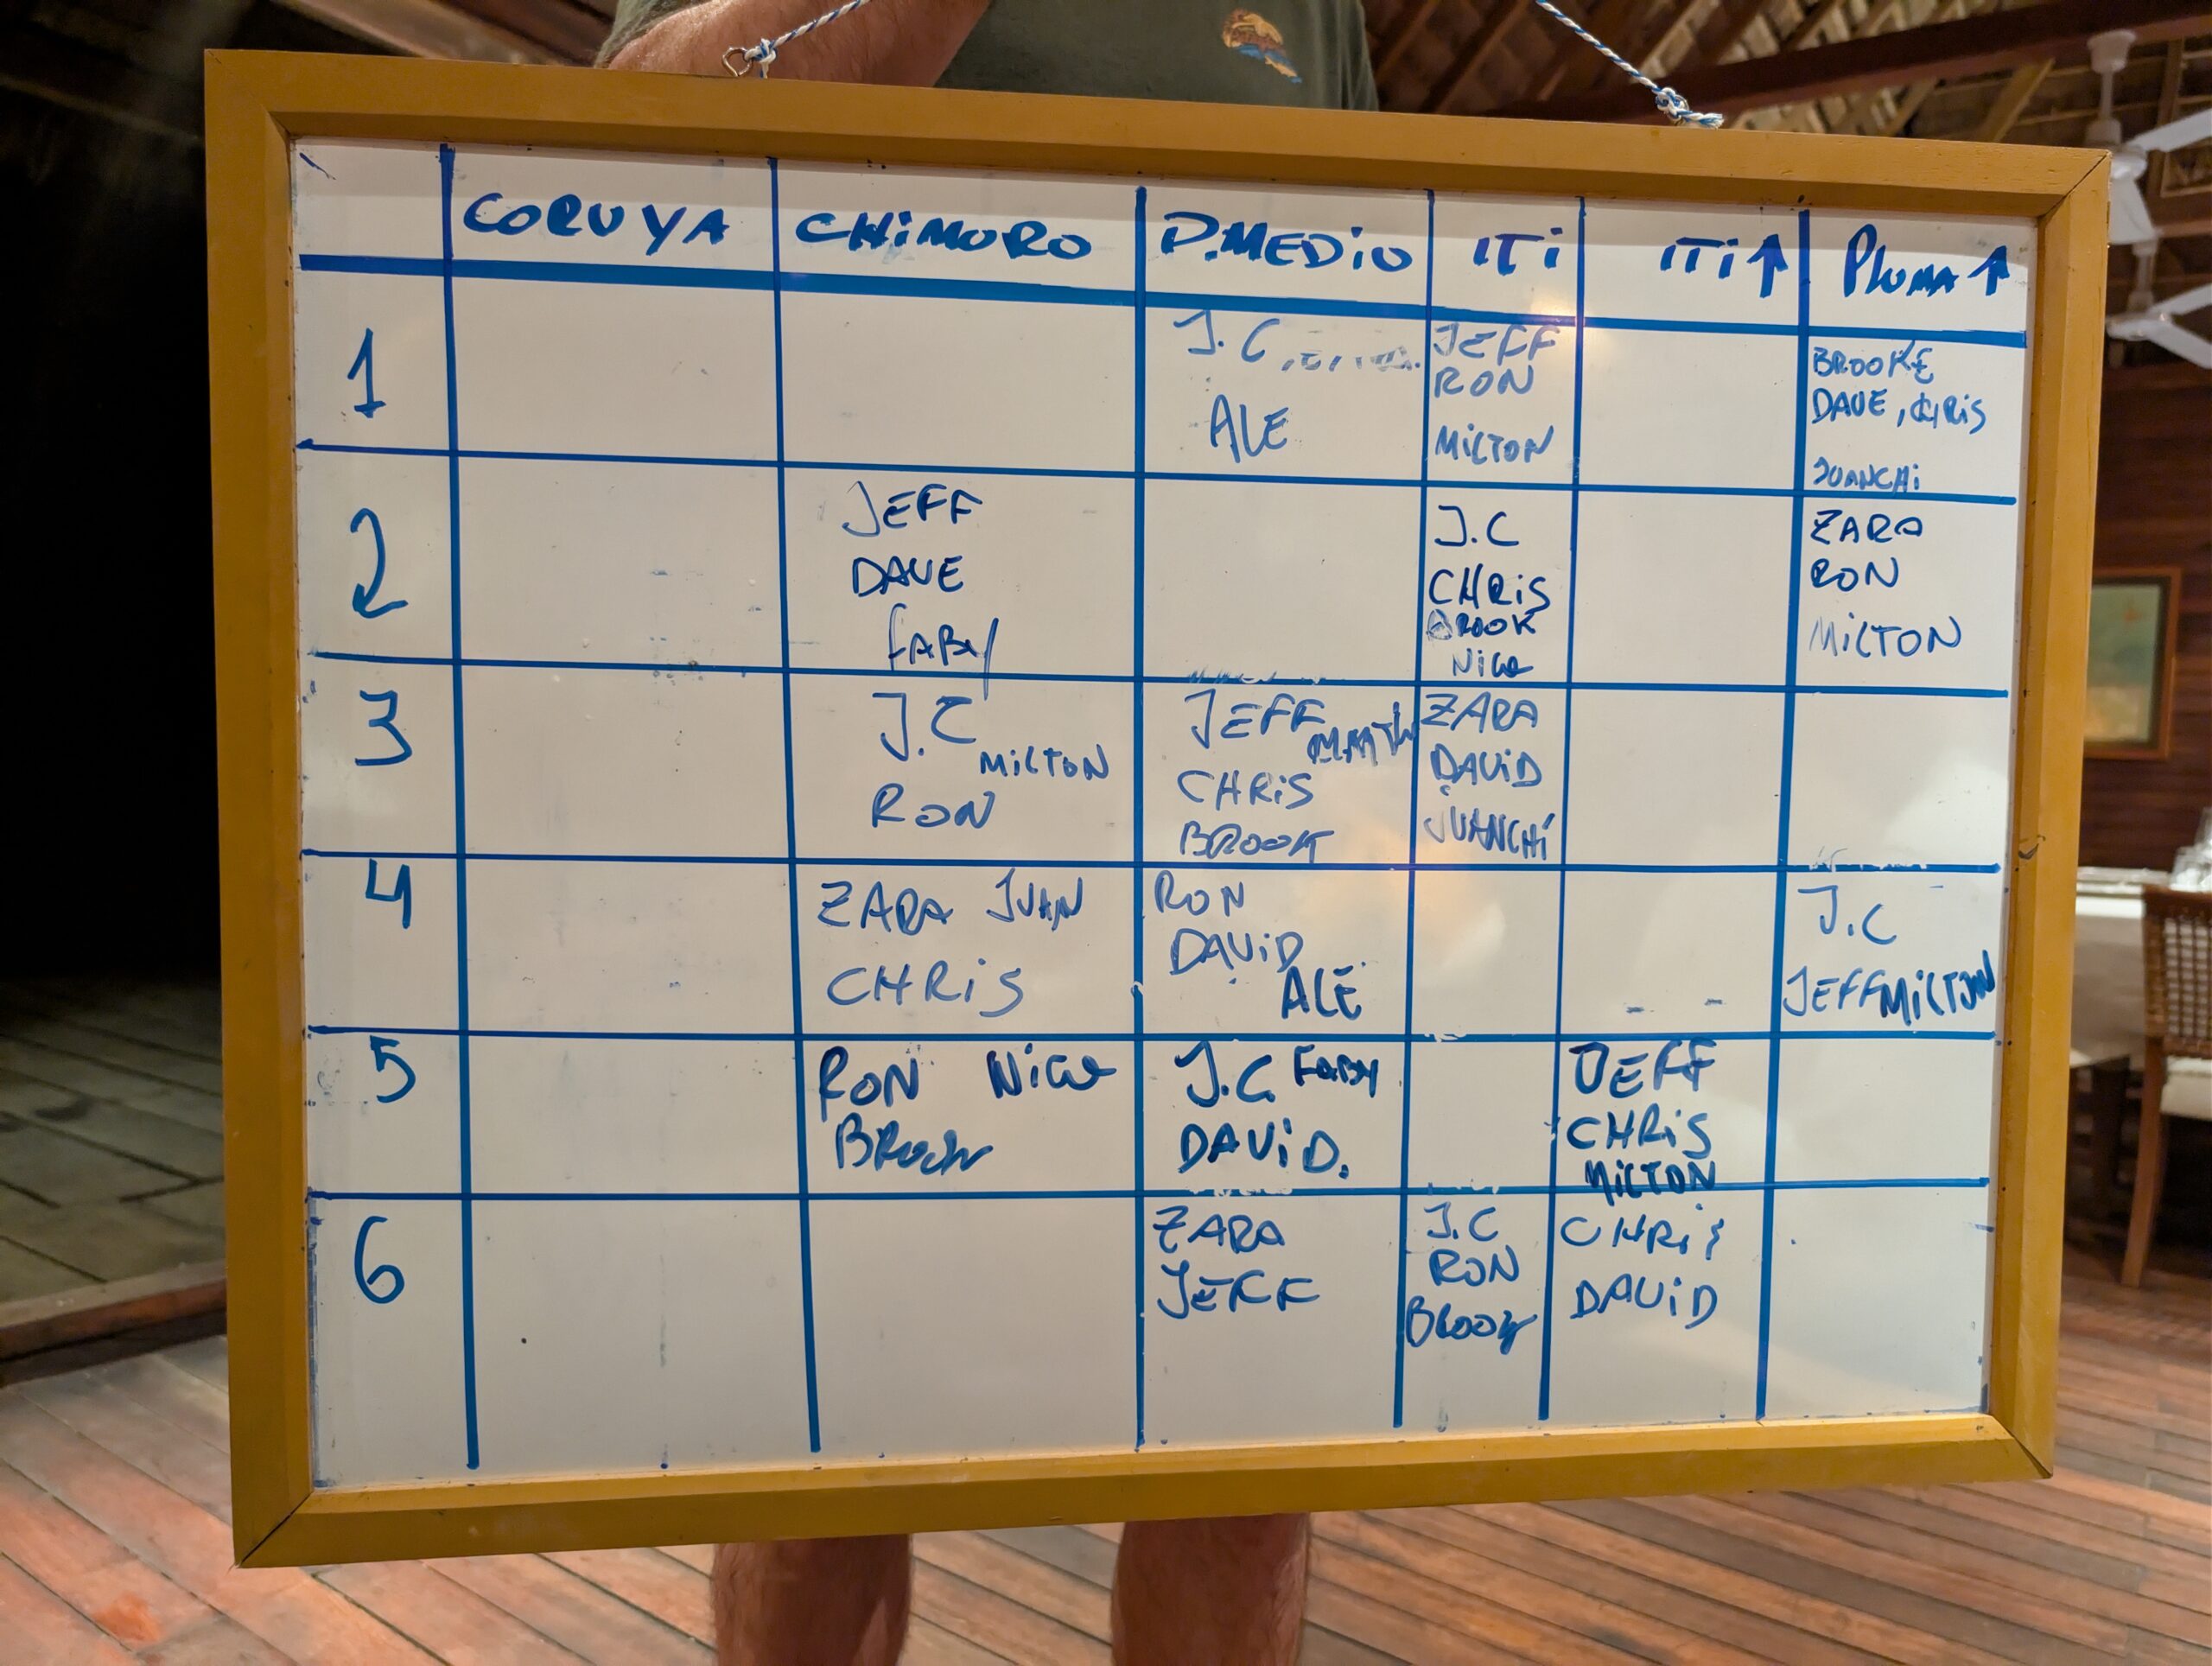 CORUYA CHiMORO P.MEDiO iTi iTi↑ PLUMA↑
1
J.C
ALE
JEFF
RON
MiLTON
BROOKE
DAVE, CHRiS
JUANCHi
2
JEFF
DAVE
FABY
J.C
CHRiS
BROOK
Nico
ZARA
RON
MiLTON
3
J.C
MiLTON
RON
JEFF
CHRiS
BROOK
ZARA
DAViD
JUANCHi
4
ZARA JUAN
CHRiS
RON
DAViD
ALE
J.C
JEFF MiLTON
5
RON Nico
BROOK
J.C. FABY
DAViD.
JEFF
CHRiS
MiLTON
6
ZARA
JEFF
J.C
RON
BROOK
CHRiS
DAViD